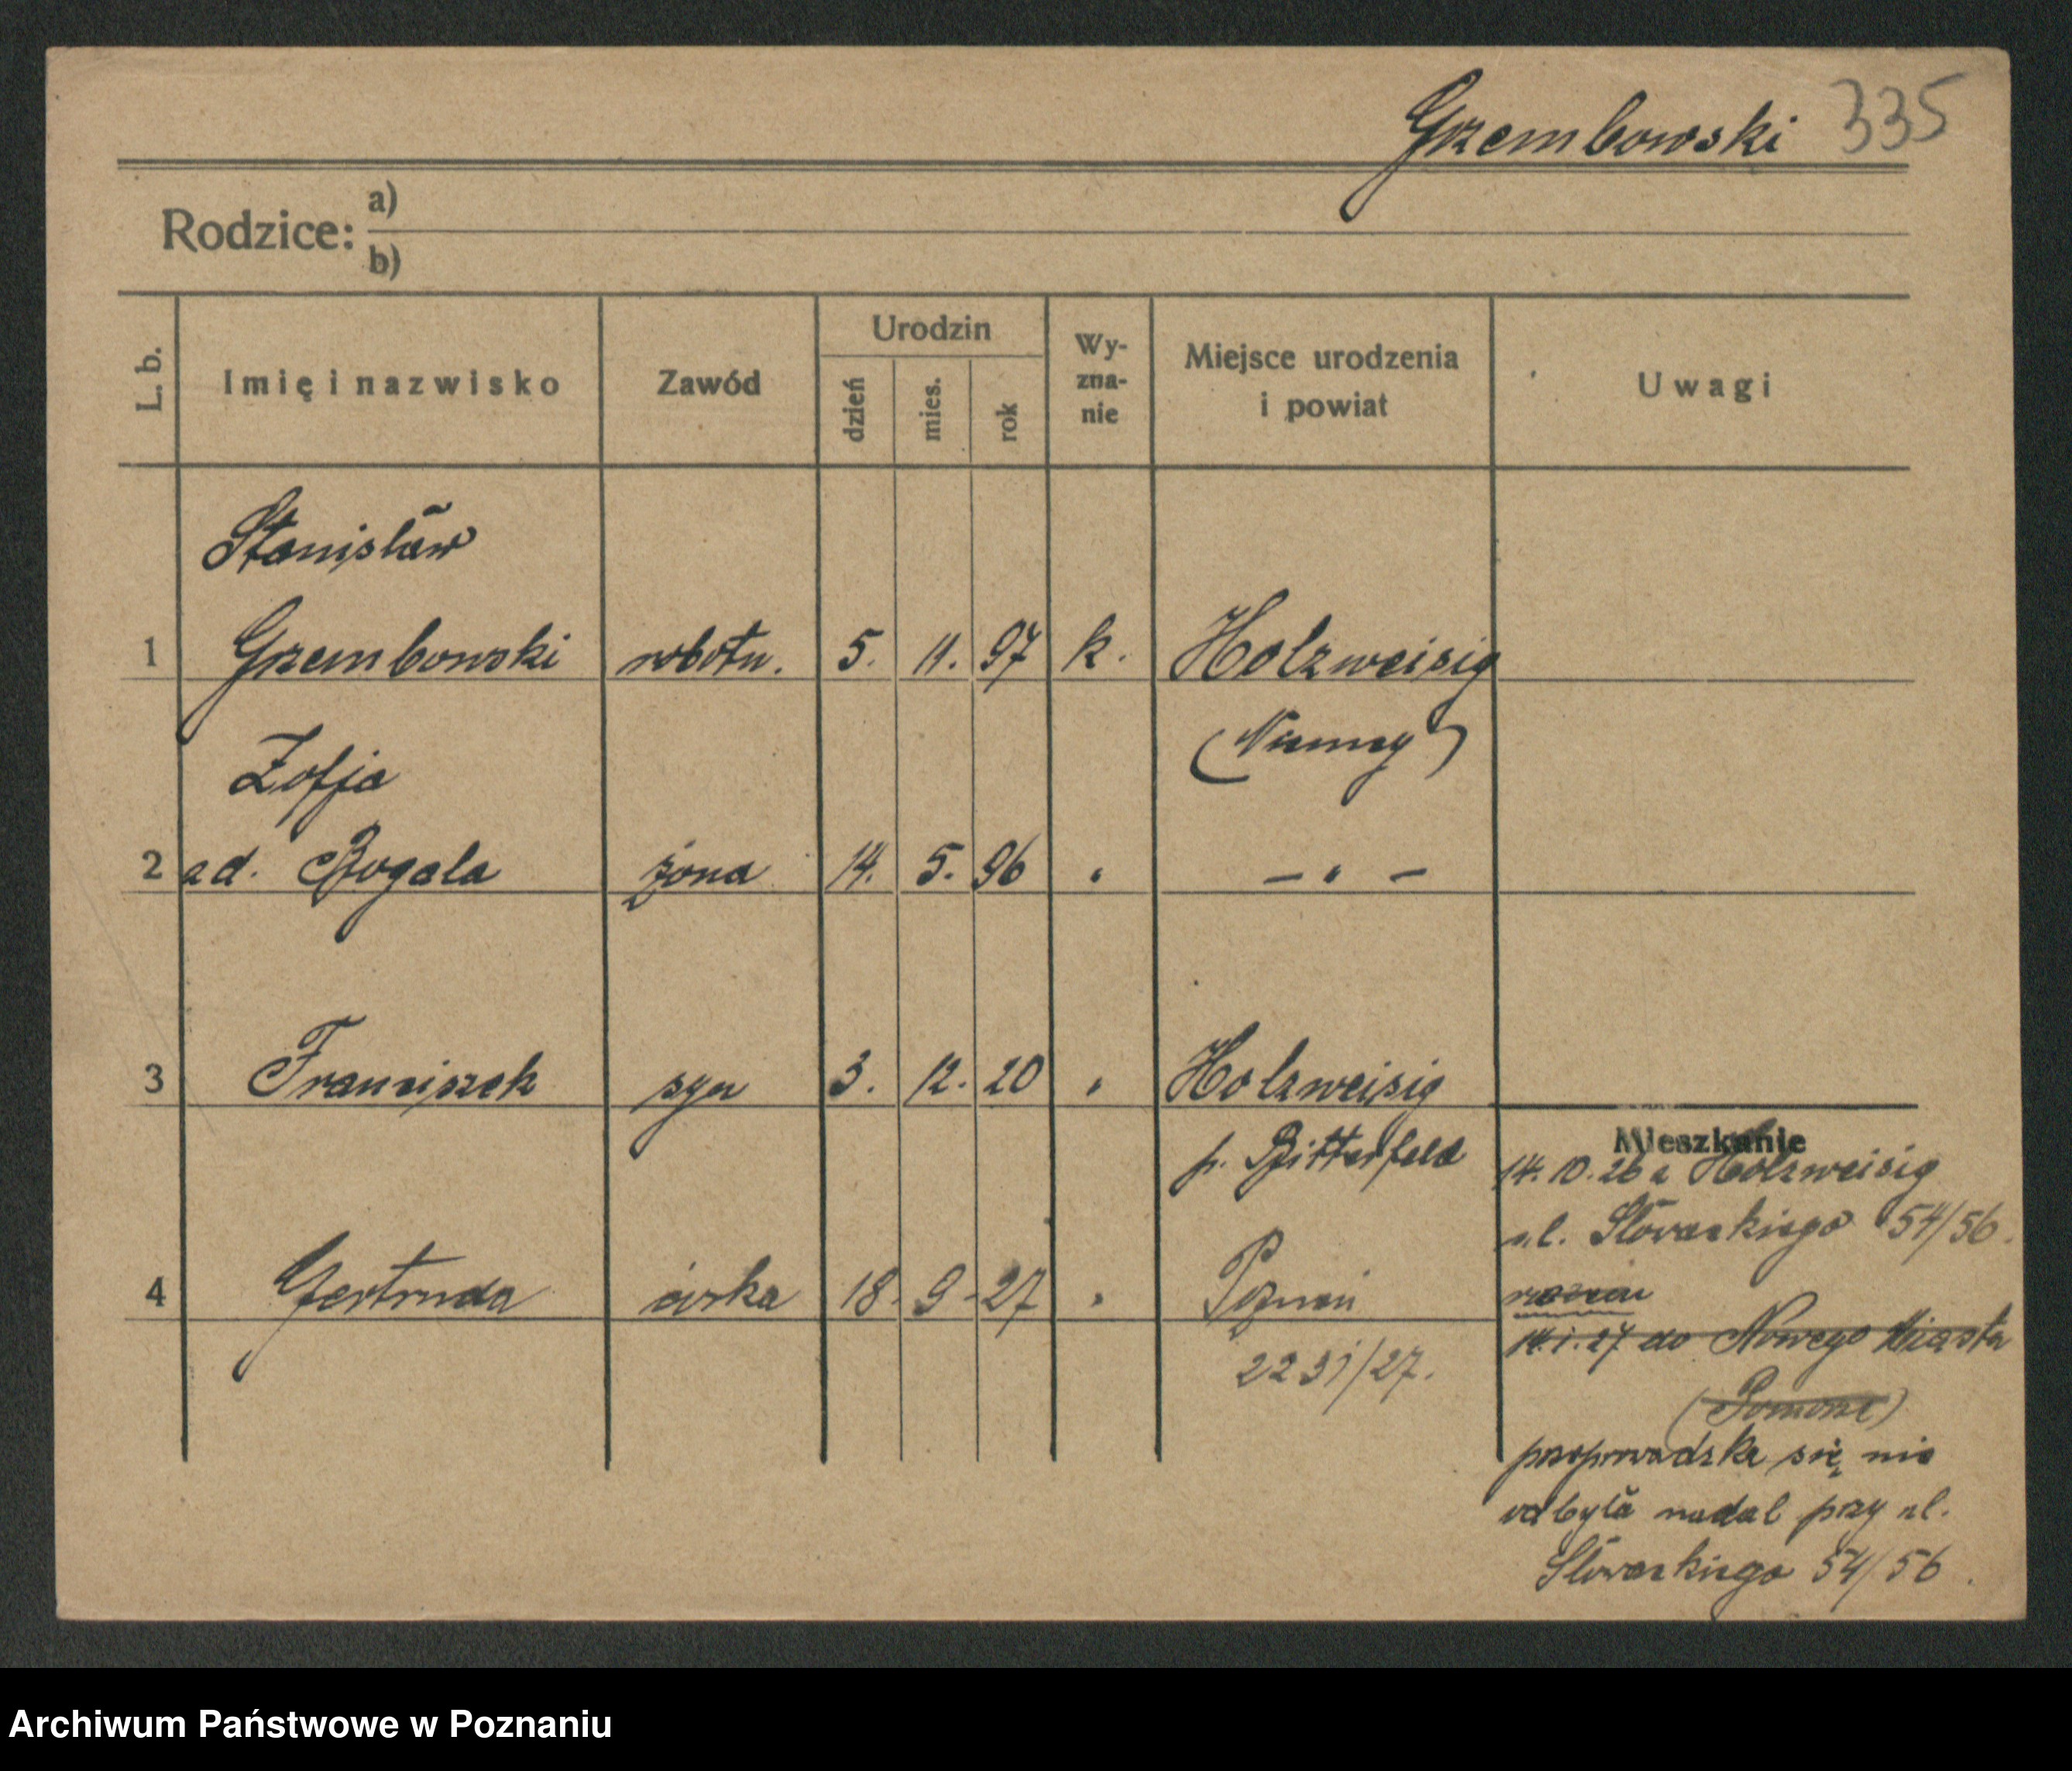 Grzembowski 335
Rodzice: a)
b)
L. b. Imię i nazwisko Zawód Urodzin dzień mies. rok Wy-zna-nie Miejsce urodzenia i powiat Uwagi
Stanisław
1 Grzembowski robotn. 5. 11. 97 k. Holzweisig
(Niemcy)
Zofja
2 zd. Bogala żona 14. 5. 96 " — " —
3 Franciszek syn 3. 12. 20 " Holzweisig
p. Bitterfeld
4 Gertruda córka 18. 9. 27 " Poznań
2231/27.
Mieszkanie
14. 10. 26 z Holzweisig
ul. Słowackiego 54/56.
14. 1. 27 do Nowego Miasta
(Pomorze)
przeprowadzka się nie
odbyła nadal przy ul.
Słowackiego 54/56.
Archiwum Państwowe w Poznaniu